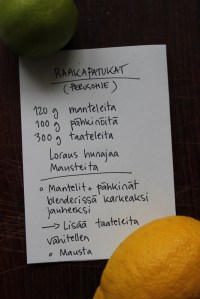 RAAKAPATUKAT
(PERUSOHJE)
120 g manteleita
100 g pähkinöitä
300 g taateleita
Loraus hunajaa
Mausteita
o Mantelit + pähkinät
blenderissä karkeaksi
jauheeksi
→ Lisää taateleita
vähitellen
o Mausta